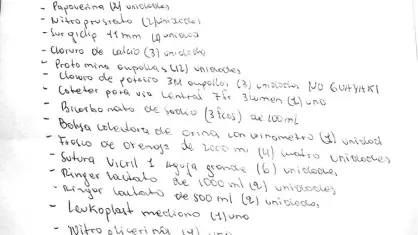 - Papaverina (4) unidades
- Nitroprusiato (2) unidades
- Surgiclip 11mm (4) unidad
- Cloruro de calcio (3) unidades
- Protamina ampollas (12) unidades
- Cloruro de potasio 3M ampollas (3) unidades NO GUAYAKI
- Cateter para via central 7fr 3 lumen (1) uno
- Bicarbonato de sodio (3 fcos) de 100ml
- Bolsa colectora de orina con urinometro (1) unidad
- Frasco de drenaje de 2000 ml (4) cuatro unidades
- Sutura Vicril 1 aguja grande (6) unidades
- Ringer lactato de 1000 ml (2) unidades
- Ringer lactato de 500 ml (2) unidades
- Leukoplast mediano (1) uno
- Nitroglicerina (1) uno